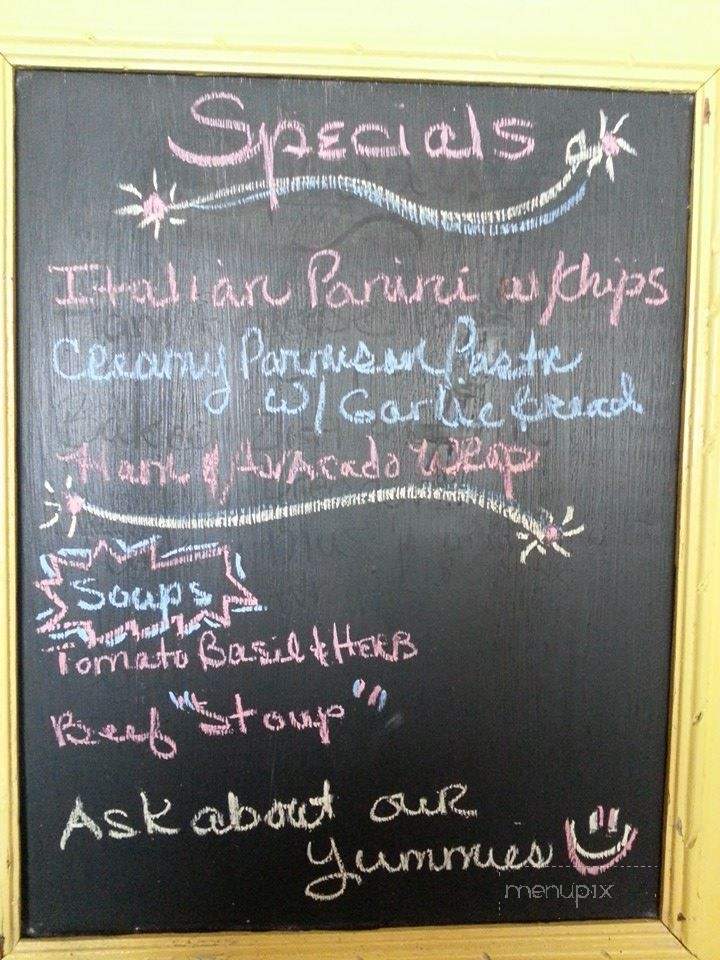 Specials
Italian Panini w/chips
Creamy Parmesan Pasta
w/ Garlic Bread
Ham & Avacado Wrap
Soups
Tomato Basil & HERB
Beef "Stoup"
Ask about our
Yummies
menupix